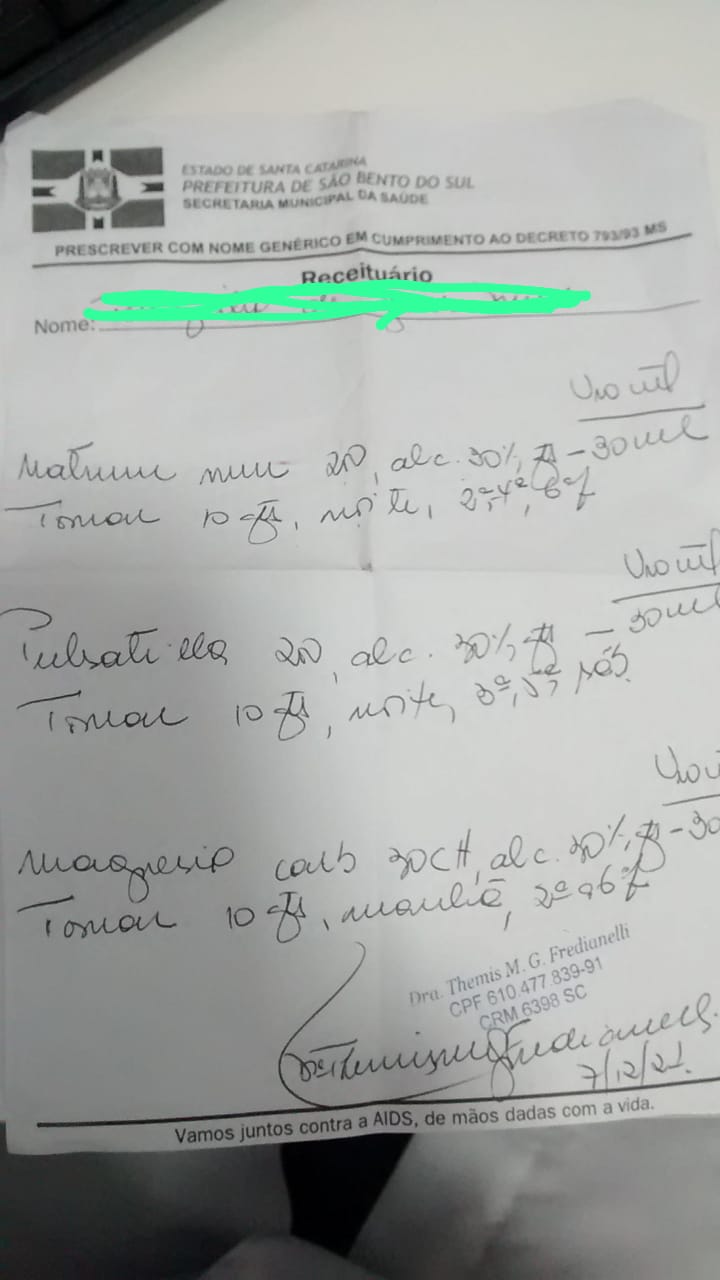 ESTADO DE SANTA CATARINA
PREFEITURA DE SÃO BENTO DO SUL
SECRETARIA MUNICIPAL DA SAÚDE
PRESCREVER COM NOME GENÉRICO EM CUMPRIMENTO AO DECRETO 793/93 MS
Receituário
Nome:
Uso int
Natrum mur 200, alc. 30%, - 30ml
Tomar 10 gts, noite, 2ª, 4ª, 6ª f
Uso int
Pulsatilla 200, alc. 30%, - 30ml
Tomar 10 gts, noite, 3ª, 5ª, sáb.
Uso
Magnesia carb 30CH, alc. 30%, - 30
Tomar 10 gts, manhã, 2ª a 6ª f
Dra. Themis M. G. Fredianelli
CPF 610.477.839-91
CRM 6398 SC
7/12/21.
Vamos juntos contra a AIDS, de mãos dadas com a vida.